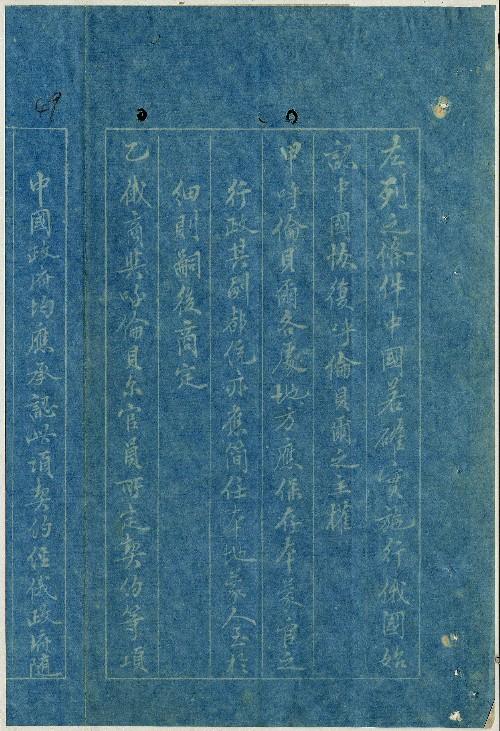 左列之條件中國若確實施行俄國始
認中國恢復呼倫貝爾之主權
甲呼倫貝爾各處地方應保存本蒙官之
行政其副都統亦應簡任本地蒙人至於
細則嗣後商定
乙俄商與呼倫貝尔官員所定契約等項
中國政府均應承認此項契約經俄政府隨
49